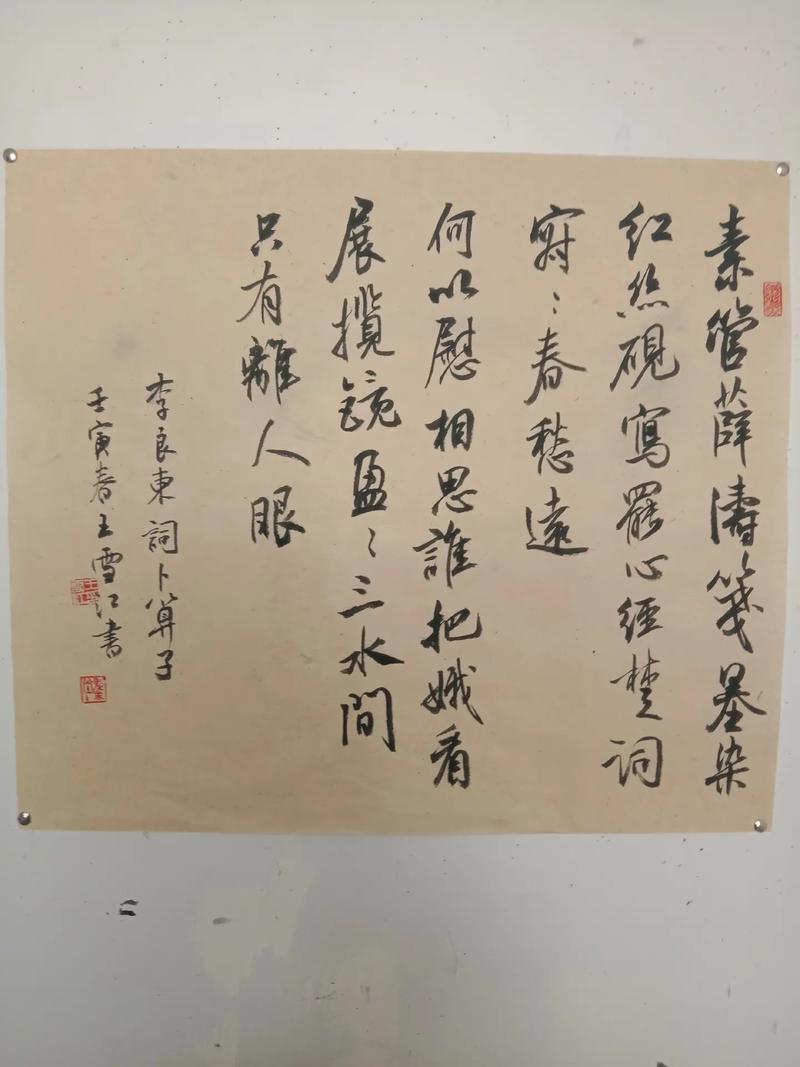 素管薛濤笺墨染
红丝硯寫罷心经楚词
寂々春愁遠
何以慰相思誰把娥眉
展攬镜盈々三水間
只有離人眼
李良東詞卜算子
壬寅春王雪江書